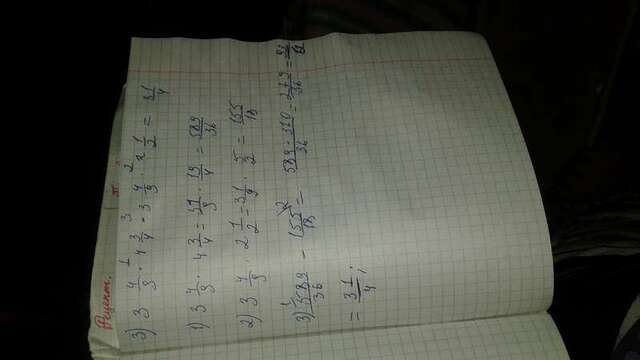 Рецепт.
3) 3 4/9 · 4 3/4 - 3 4/9 · 2 1/2 =
1) 3 4/9 · 4 3/4 = 31/9 · 19/4 = 589/36
2) 3 4/9 · 2 1/2 = 31/9 · 5/2 = 155/18
3) 589/36 - 155/18 = 589 - 310/36 = 279/36 =
= 3 1/4;